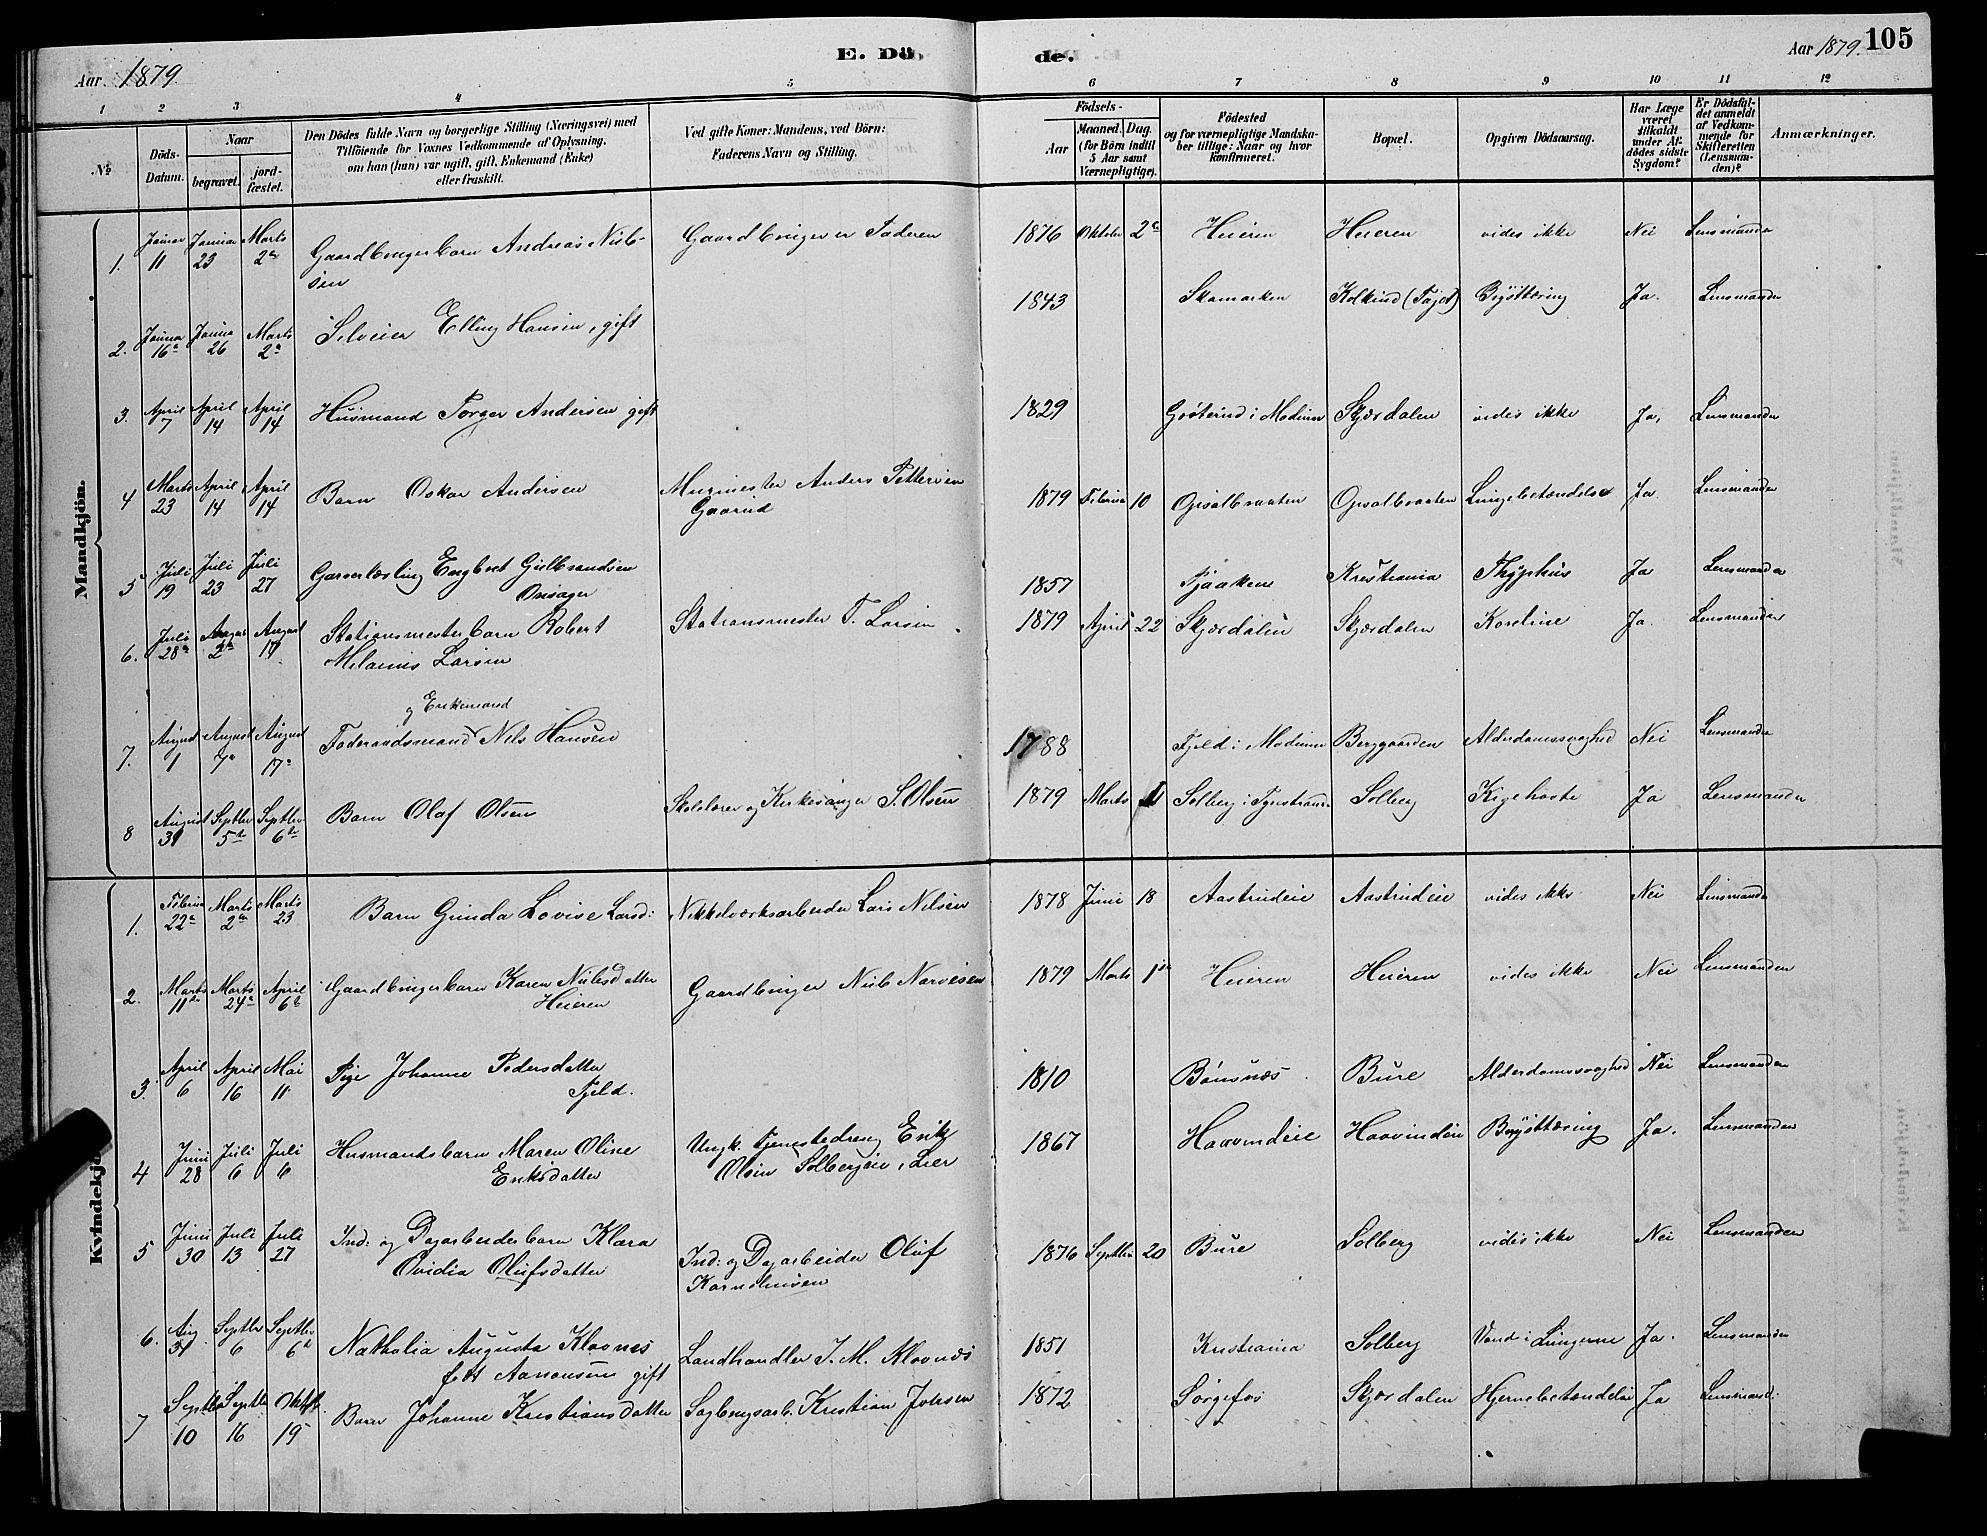 Aar 1879.
E. Dö
de.
Aar 1879.
105
1 2 3 4 5 6 7 8 9 10 11 12
No
Döds-Datum.
Naar
begravet.
jord-fæstet.
Den Dödes fulde Navn og borgerlige Stilling (Næringsvei) med
Tilföiende for Voxnes Vedkommende af Oplysning,
om han (hun) var ugift, gift, Enkemand (Enke)
eller fraskilt.
Ved gifte Koner: Mandens, ved Börn:
Faderens Navn og Stilling.
Födsels-
Aar
Maaned. Dag.
(for Börn indtil
5 Aar samt
Værnepligtige).
Födested
og for værnepligtige Mandska-
ber tillige: Naar og hvor
konfirmeret.
Bopæl.
Opgiven Dödsaarsag.
Har Læge
været
tilkaldt
under Af-
dödes sidste
Sygdom?
Er Dödsfal-
det anmeldt
af Vedkom-
mende for
Skifteretten
(Lensman-
den)?
Anmærkninger.
Mandkjön.
1. Januar 11 Januar 23 Marts 2 Gaardbrugerbarn Andreas Niils-
sen Gaardbruger er Faderen 1876 Oktober 2 Heieren Heieren vides ikke Nei Lensmanden
2. Januar 16 Januar 26 Marts 2 Elling Hansen, gift 1843 Skamarken Brysttæring Ja. Lensmanden
3. April 7 April 14 April 14 Husmand Torger Andersen gift 1829 i Modum Skjærdalen vides ikke Ja, Lensmanden
4 Marts 23 April 14 April 14 Barn Oskar Andersen Murmester Anders Pettersen
Gaarud 1879 Februar 10 Opsalbraaten Opsalbraaten Lungebetændelse Ja Lensmanden
5 Juli 19 Juli 23 Juli 27 Garverlærling Engbret Gulbrandsen
Onsager 1857 Kristiania Thyphus Ja Lensmanden
6. Juli 28 August 2 August 17 Stationsmesterbarn Robert
Melanius Larsen Stationsmester T. Larsen 1879 April 22 Skjærdalen Skjærdalen Ja. Lensmanden
7. August 1 August 7 August 17 Foderaadsmand og Enkemand Nils Hansen 1788 Fjeld i Modum Berggaarden Alderdomssvaghed Nei Lensmanden
8 August 31 Septbr 5te Septbr 6te Barn Olaf Olsen Skolelærer og Kirkesanger S. Olsen 1879 Marts 1 Solberg i Tyristrand Solberg Kighoste Ja Lensmanden
Kvindekjön.
1. Februar 22 Marts 2 Marts 23 Barn Gunda Lovise Larsd: Nikkelværksarbeider Lars Nilsen 1878 Juni 18 Aastrudeie Aastrudeie vides ikke Nei Lensmanden
2. Marts 11te Marts 24 April 6te Gaardbrugerbarn Karen Nielsdatter
Heieren Gaardbruger Niels Narvesen 1879 Marts 1ste Heieren Heieren vides ikke Nei Lensmanden
3. April 6 April 16 Mai 11 Pige Johanne Pedersdatter
Fjeld. 1810 Bönsnæs Bure Alderdomssvaghed Nei Lensmanden
4 Juni 28 Juli 6 Juli 6 Husmandsbarn Maren Oline
Eriksdatter Ungk. Tjenestedreng Erik
Olsen Solbergeie, Lier 1867 Haavindeie Haavindeie Brysttæring Ja. Lensmanden
5 Juni 30 Juli 13 Juli 27 Ind: og Dagarbeiderbarn Klara
Ovidia Olufsdatter Ind: og Dagarbeider Oluf
Korneliusen 1876 Septbr 20 Bure Solberg vides ikke Nei Lensmanden
6. Aug 31 Septbr 6 Septbr 6te Nathalia Augusta Klovnes
født Aanonsen gift Landhandler J. M. Klovnes 1851 Kristiania Solberg Vand i Lungerne Ja. Lensmanden
7 Septbr 10 Septbr 16 Oktbr. 19 Barn Johanne Kristiansdatter Sagbrugsarb. Kristian Johsen 1872 Sørgefos Skjærdalen Hjernebetændelse Ja Lensmand: